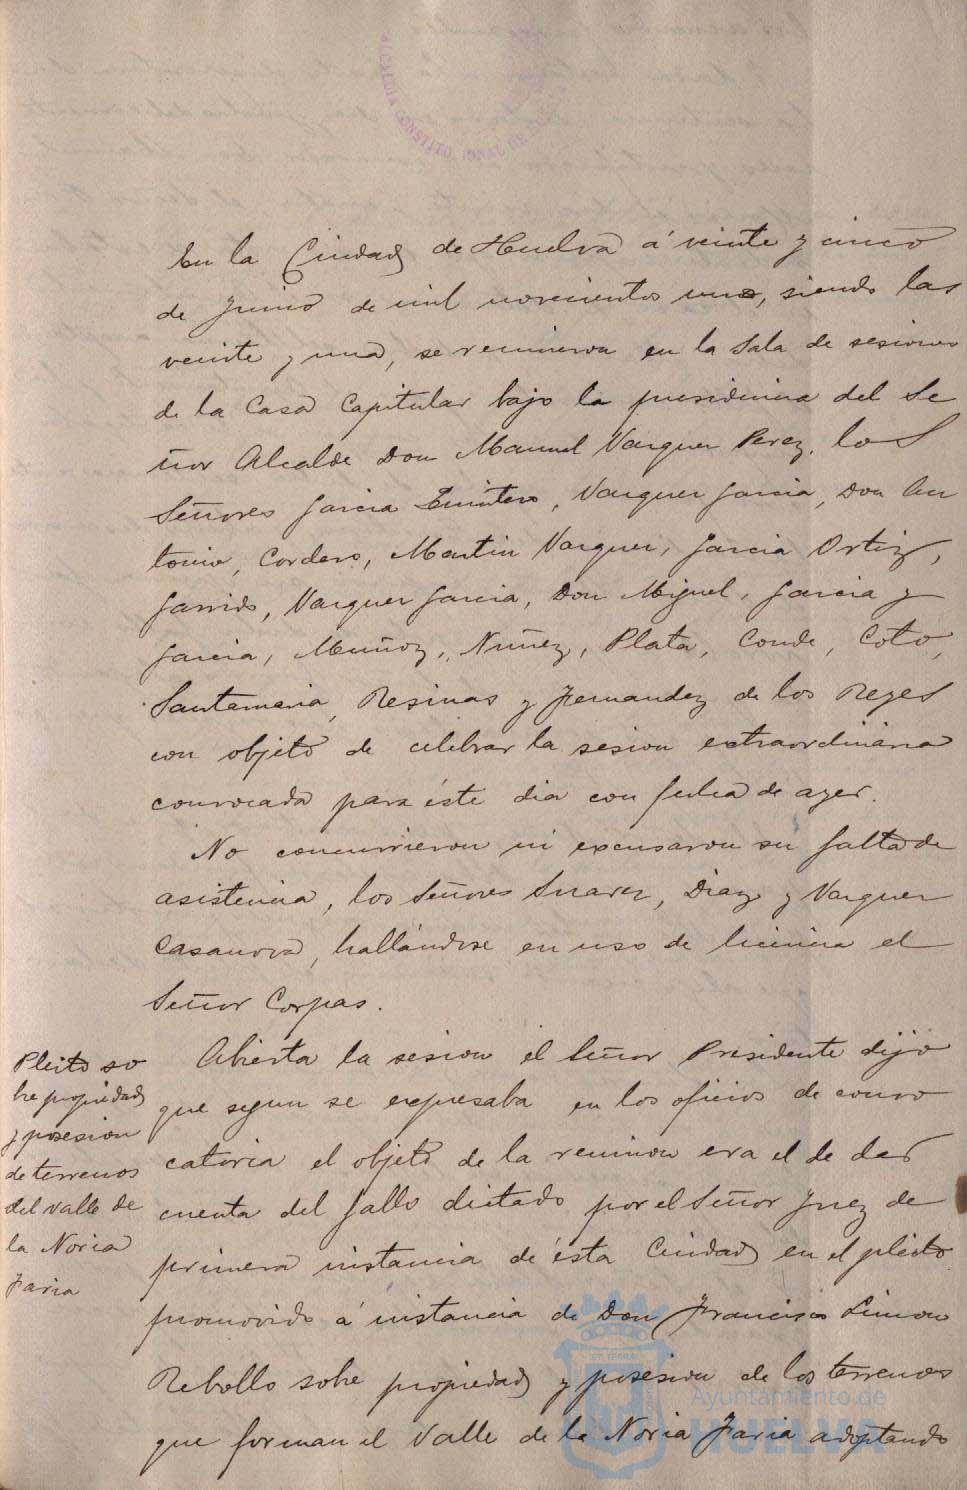 ALCALDIA CONSTITUCIONAL DE
En la Ciudad de Huelva á veinte y cinco
de Junio de mil novecientos uno, siendo las
veinte y una, se reunieron en la Sala de sesiones
de la Casa Capitular bajo la presidencia del Se
ñor Alcalde Don Manuel Vazquez Perez, los
Señores Garcia Quintero, Vazquez Garcia, Don An
tonio, Cordero, Martin Vazquez, Garcia Ortiz,
Garrido, Vazquez Garcia, Don Miguel, Garcia y
Garcia, Muñoz, Nuñez, Plata, Conde, Coto,
Santamaria, Resinas y Fernandez de los Reyes
con objeto de celebrar la sesion extraordinaria
convocada para éste dia con fecha de ayer.
No concurrieron ni excusaron su falta de
asistencia, los Señores Suarez, Diaz y Vazquez
Casanova, hallándose en uso de licencia el
Señor Corpas.
Pleito so
bre propiedad
y posesion
de terrenos
del valle de
la Noria
Faria
Abierta la sesion el Señor Presidente dijo
que segun se expresaba en los oficios de convo
catoria el objeto de la reunion era el de dar
cuenta del fallo dictado por el Señor Juez de
primera instancia de ésta Ciudad en el pleito
promovido á instancia de Don Francisco Limon
Rebollo sobre propiedad y posesion de los terrenos
que forman el Valle de la Noria Faria adoptando
Ayuntamiento de
HUELVA